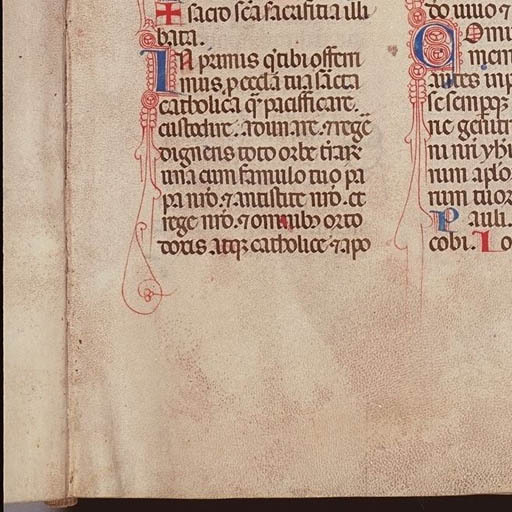 ✠ sacro sc̄a sacrificia illi
bata.
In primis q̄ tibi offerri
mus, p eccl̄a tua sācta
catholica q̄ pacificare.
custodire. adunare. ⁊ rege
digneris toto orbe t̄rarū
una cum famulo tuo pa
pa nr̄o. ⁊ antistite nr̄o. et
rege nr̄o. ⁊ omnibꝫ orto
doxis. atqꝫ catholice ⁊ apo
do uiuo ⁊
Com
mem
antes in p
se semperqꝫ
ne genitri
ni nr̄i yhu
rum apl̄or
rum tuor
Pauli.
cobi. Io